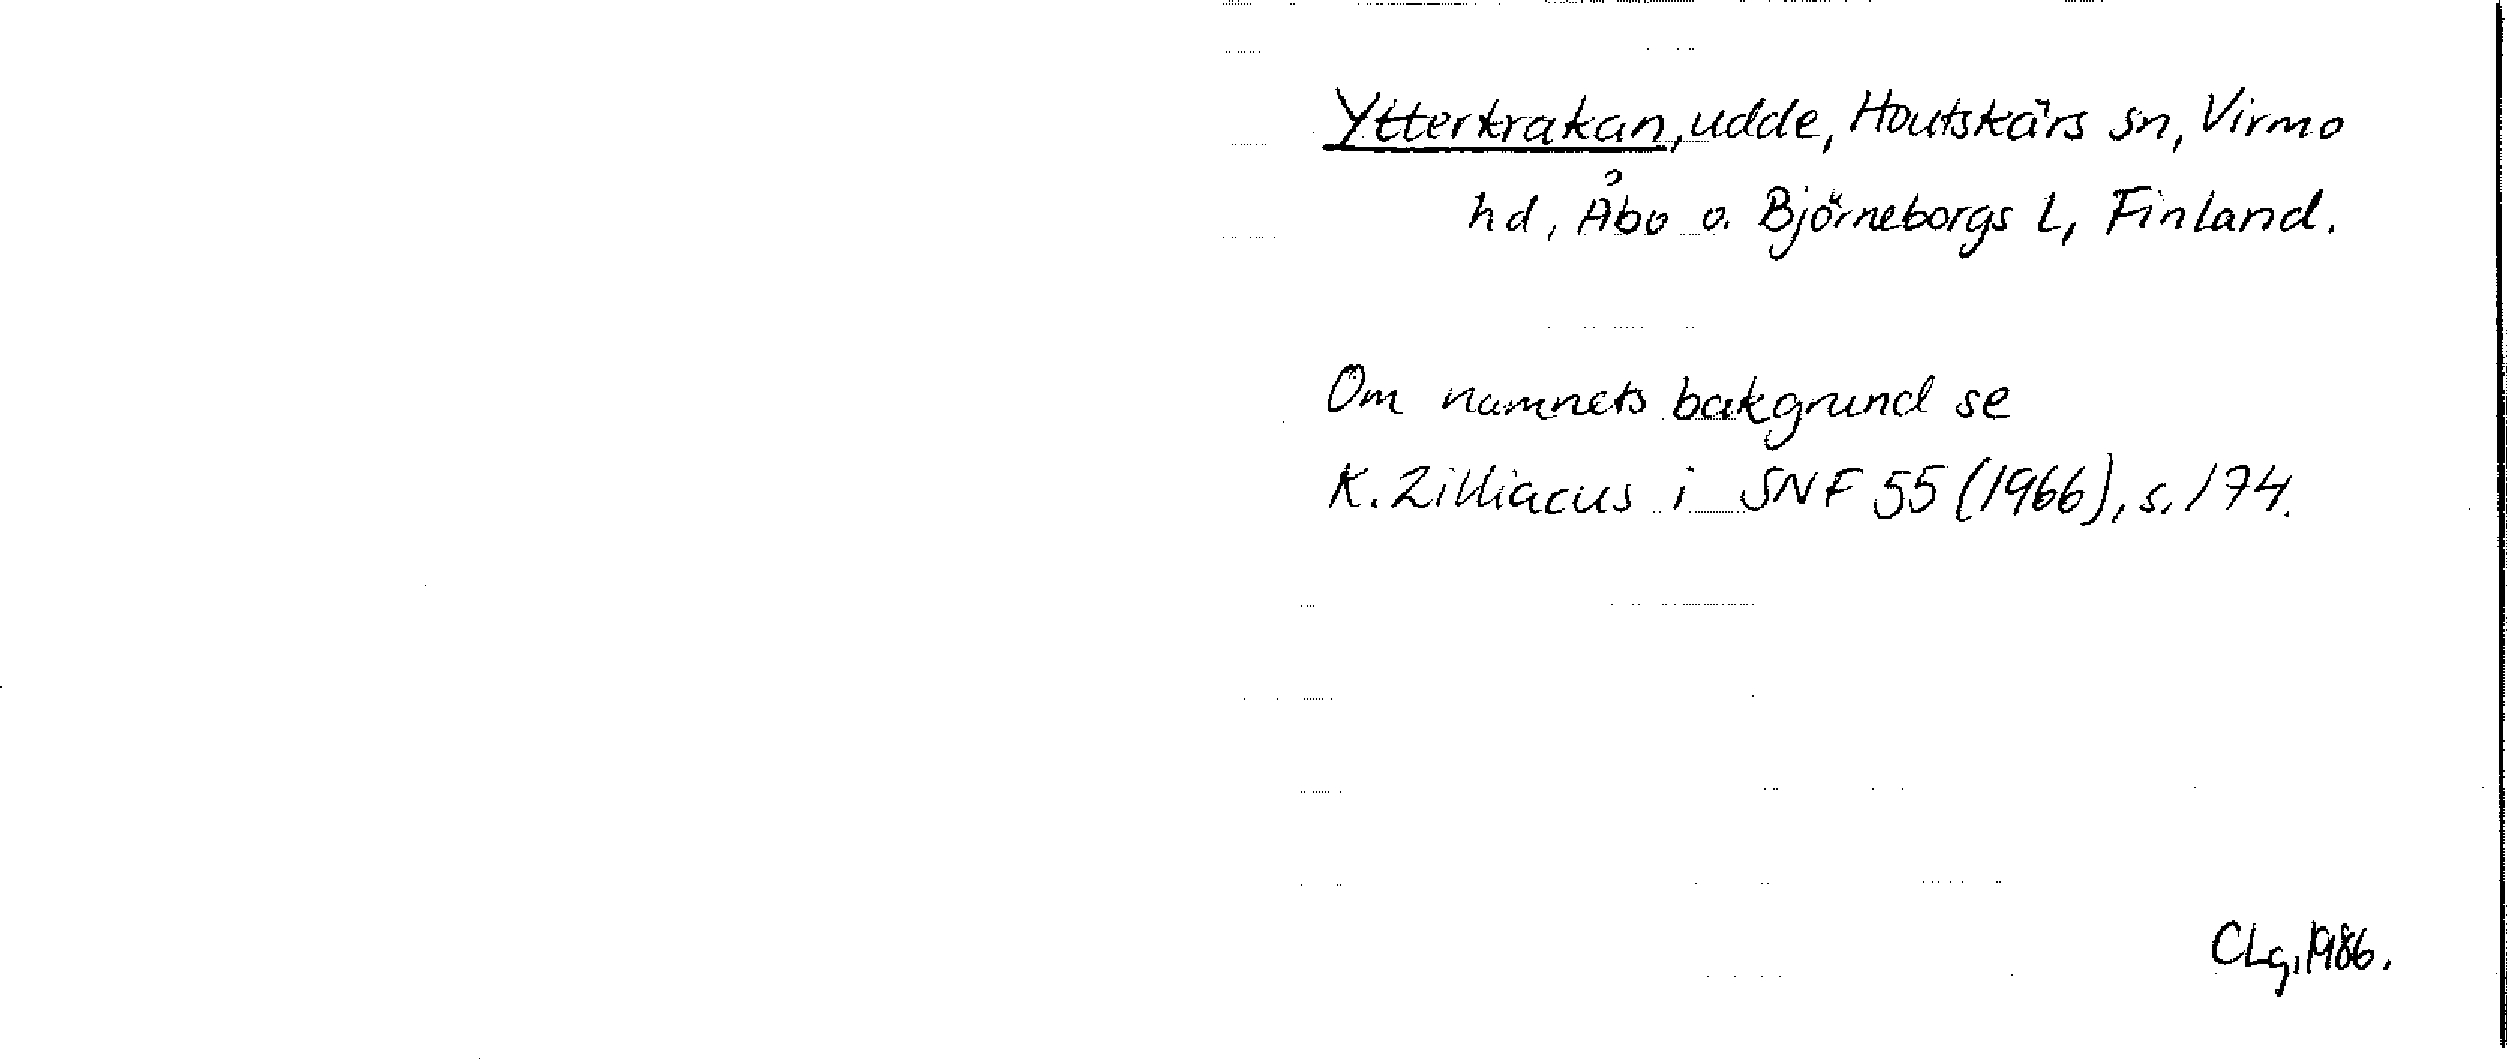 Ytterkrakan, udde, Houtskärs sn, Virmo
hd, Åbo o. Björneborgs l, Finland.
Om namnets bakgrund se
K. Zilliacus i SNF 55 (1966), s. 174.
CLg, 1986.